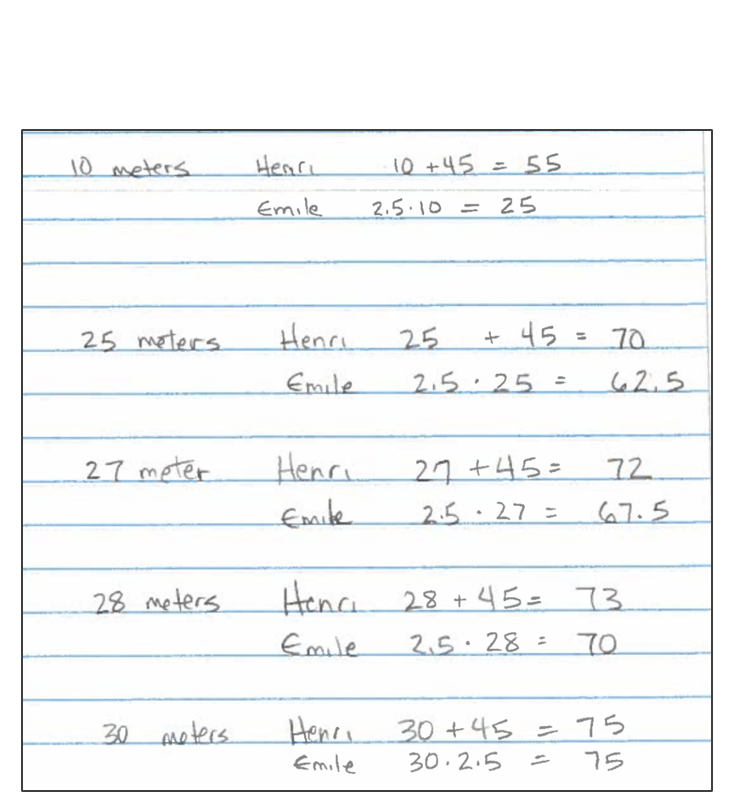 10 meters Henri 10 + 45 = 55
Emile 2.5 · 10 = 25
25 meters Henri 25 + 45 = 70
Emile 2.5 · 25 = 62.5
27 meter Henri 27 + 45 = 72
Emile 2.5 · 27 = 67.5
28 meters Henri 28 + 45 = 73
Emile 2.5 · 28 = 70
30 meters Henri 30 + 45 = 75
Emile 30 · 2.5 = 75